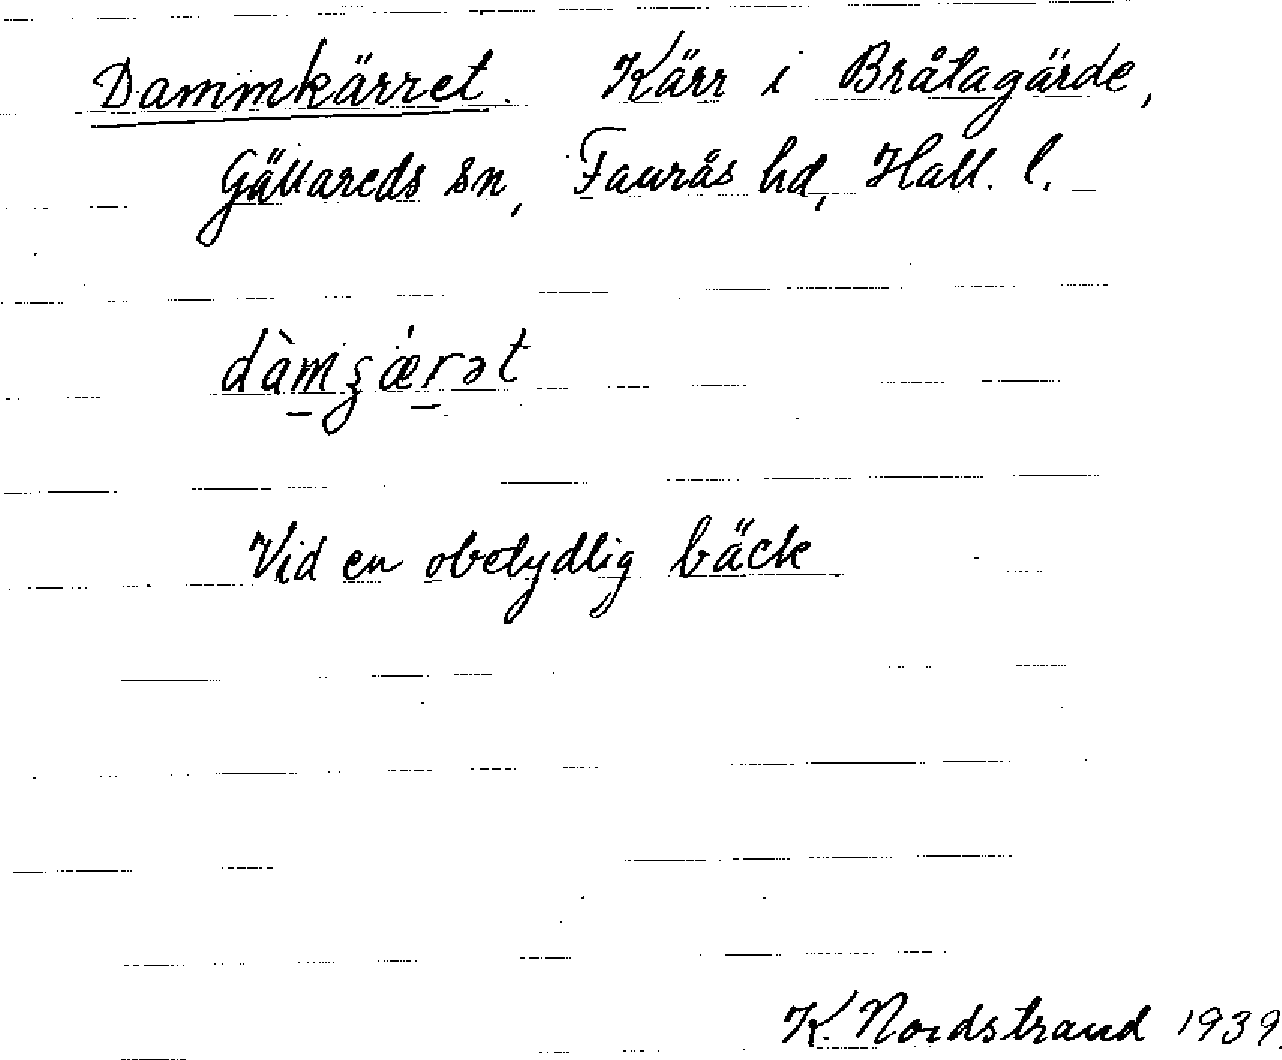 Dammkärret. Kärr i Bråtagärde,
Gällareds sn, Faurås hd, Hall. l.
dàm̱ʂæ̀ṟət
Vid en obetydlig bäck
K. Nordstrand 1939.